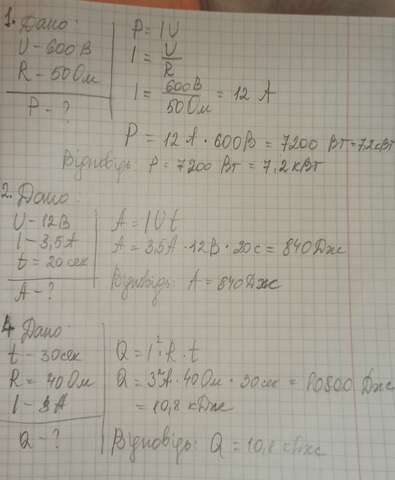 1. Дано:
U - 600 В
R - 50 Ом
P - ?
P = IU
I = U/R
I = 600В/50Ом = 12 А
P = 12 А · 600В = 7200 Вт = 7,2 кВт
Відповідь: P = 7200 Вт = 7,2 кВт
2. Дано:
U - 12В
I - 3,5А
t = 20 сек
A - ?
A = IUt
A = 3,5А · 12В · 20с = 840 Дж
Відповідь: A = 840 Дж
4. Дано:
t - 30 сек
R = 40 Ом
I - 3А
Q - ?
Q = I² · R · t
Q = 3²А · 40 Ом · 30 сек = 10800 Дж
= 10,8 кДж
Відповідь: Q = 10,8 кДж